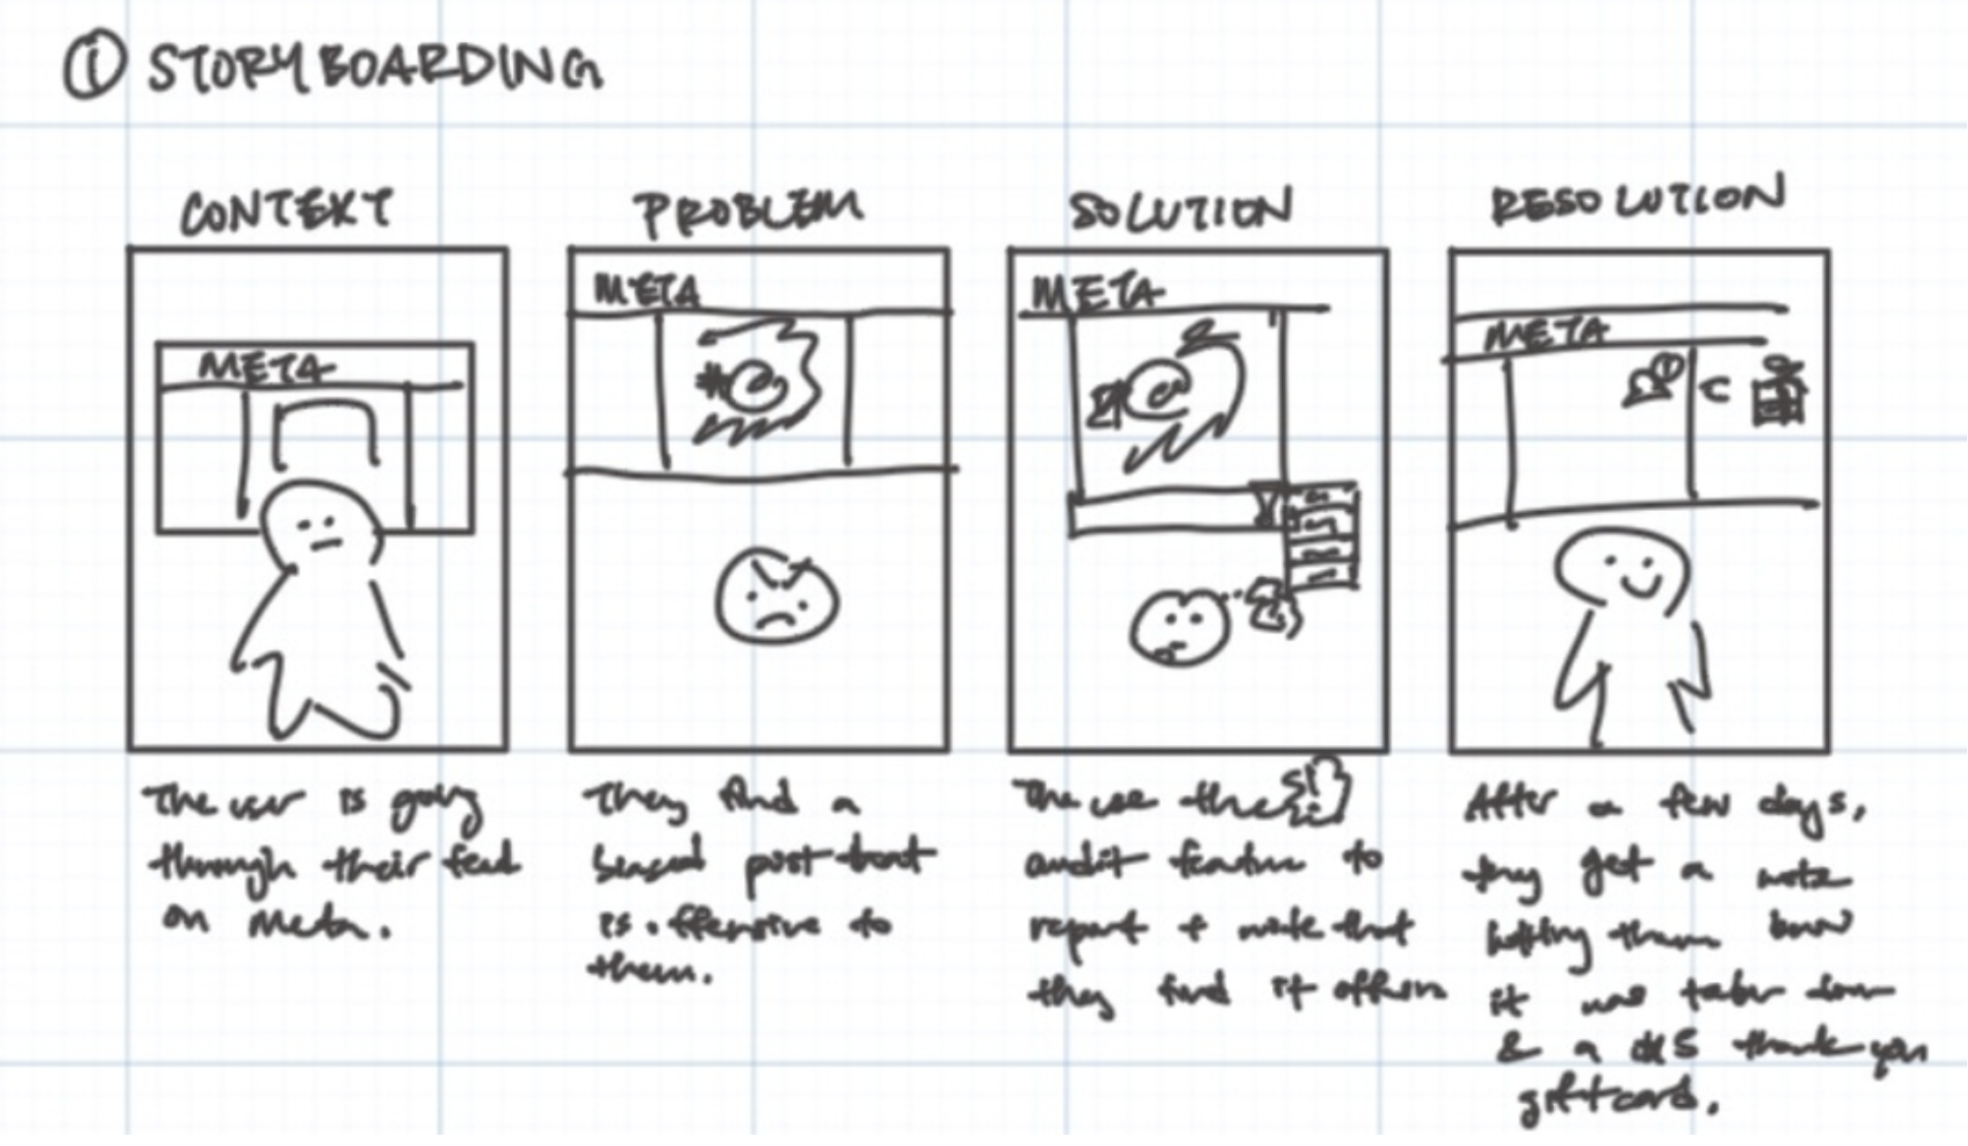 ① STORYBOARDING
CONTEXT
META
The user is going
through their feed
on Meta.
PROBLEM
META
They find a
biased post that
is offensive to
them.
SOLUTION
META
The use the
audit feature to
report + note that
they find it offensive
RESOLUTION
META
After a few days,
they get a note
letting them know
it was taken down
& a $ thank you
giftcard.